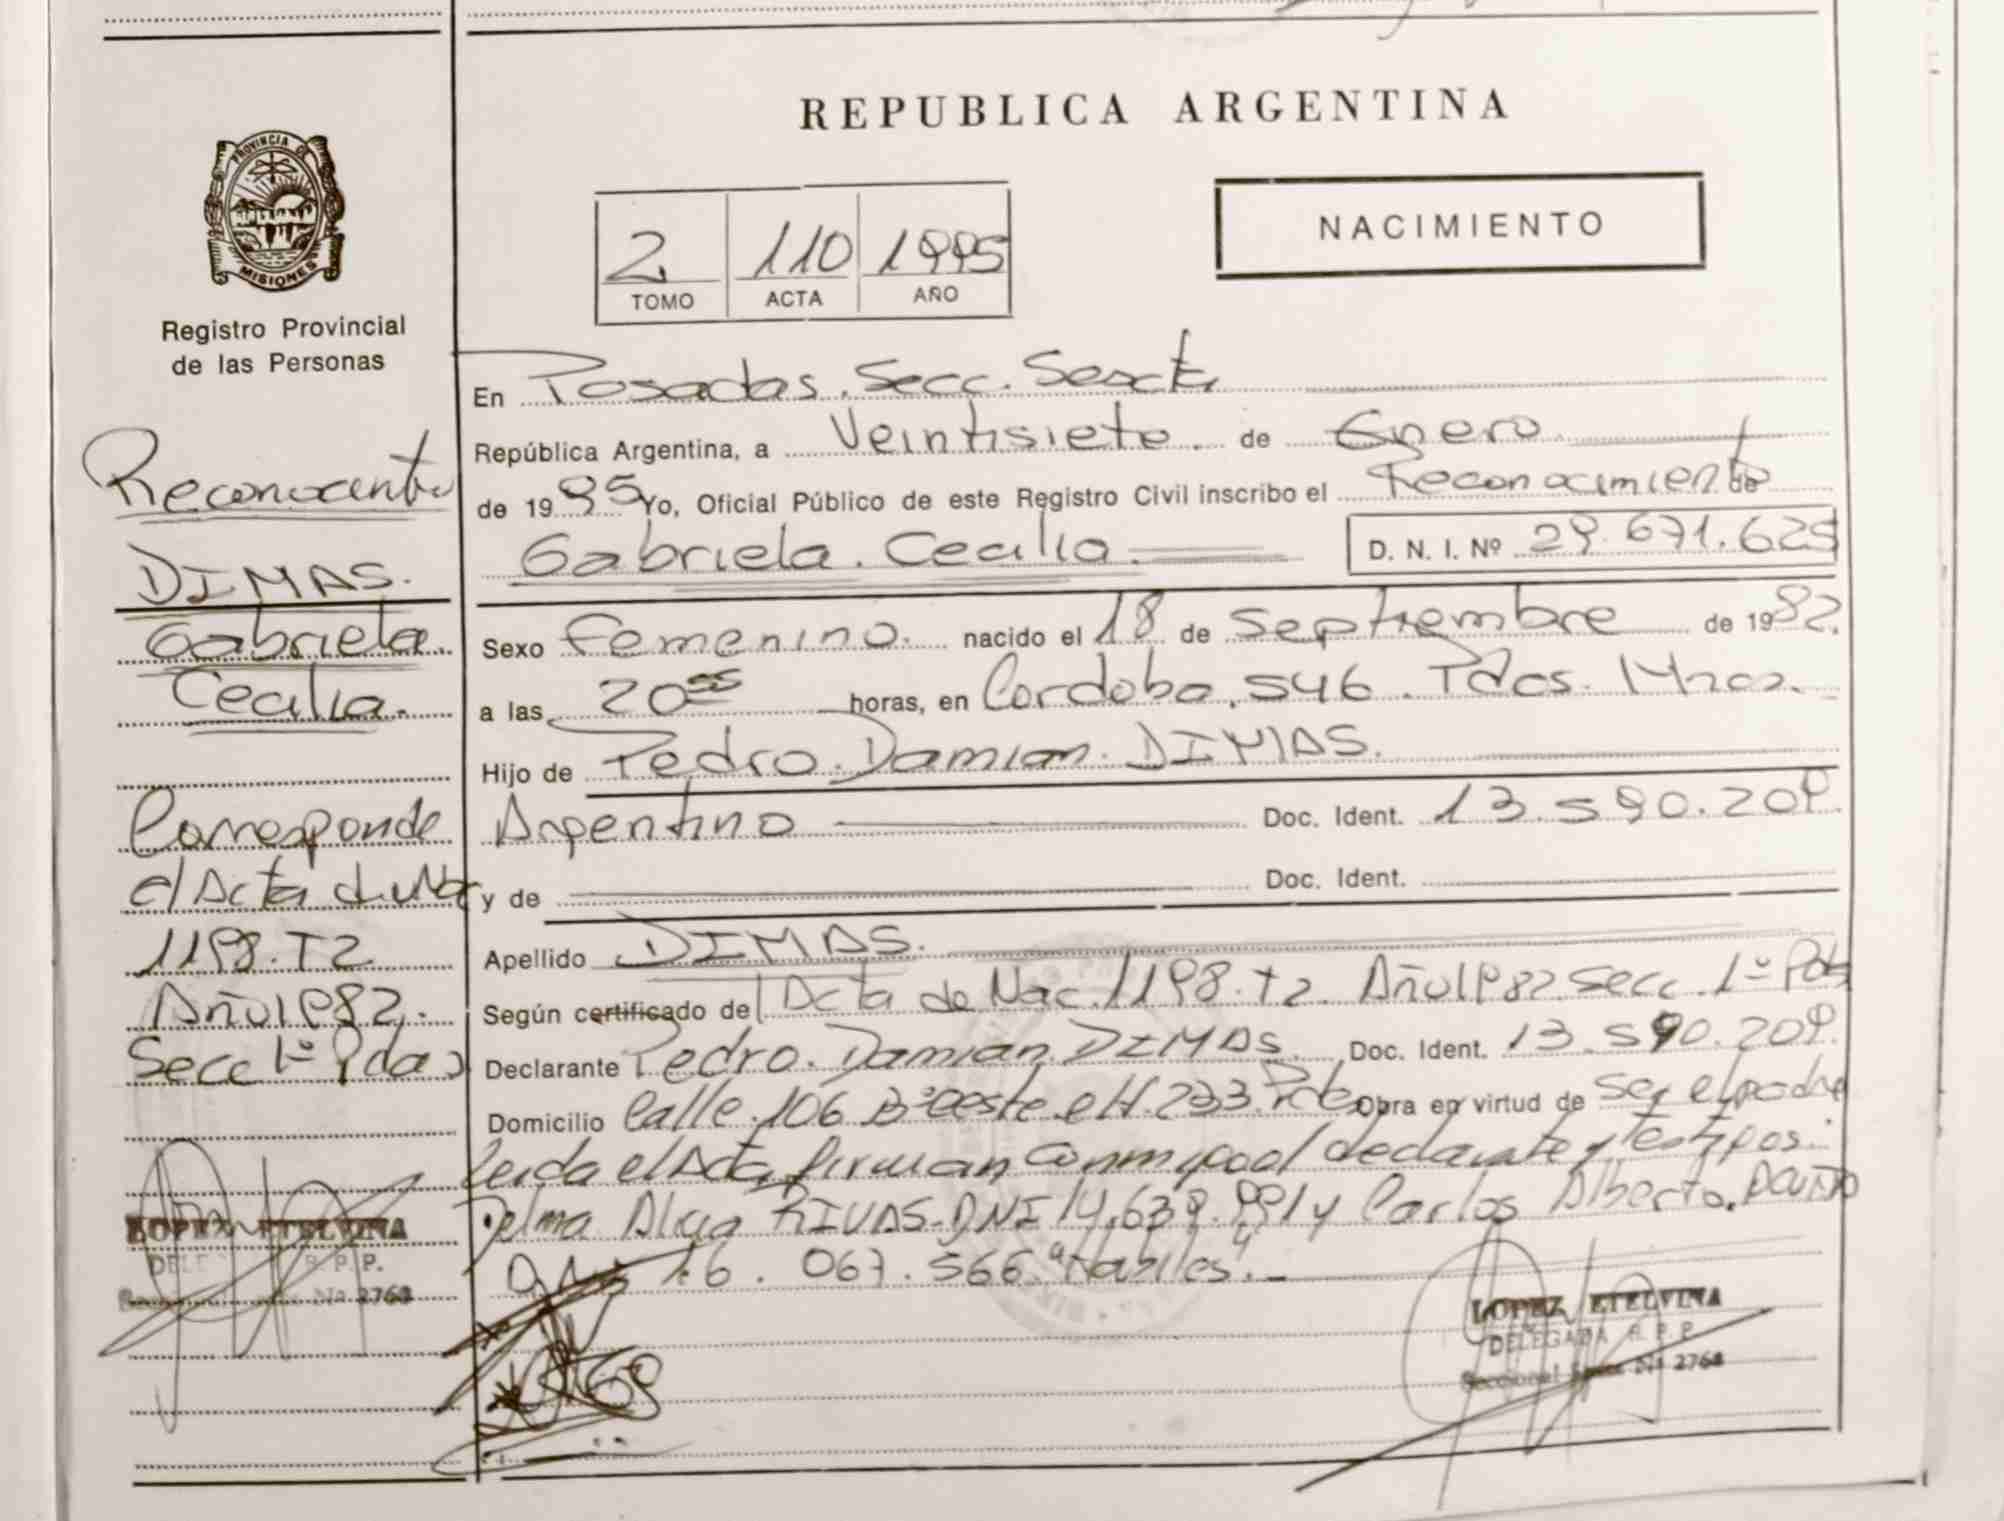 PROVINCIA DE
MISIONES
Registro Provincial
de las Personas
Reconocimiento
DIMAS.
Gabriela.
Cecilia.
Corresponde
el Acta de Nac
1198. T2
Año 1982.
Secc 1º Pdas
LOPEZ ETELVINA
R. P. P.
Nº 2768
REPUBLICA ARGENTINA
NACIMIENTO
2 110 1995
TOMO ACTA AÑO
En Posadas. Secc. Sexta
República Argentina, a Veintisiete. de Enero
de 1995 Yo, Oficial Público de este Registro Civil inscribo el Reconocimiento de
Gabriela. Cecilia. D. N. I. Nº 29.671.625
Sexo Femenino. nacido el 18 de Septiembre de 1982.
a las 20 horas, en Cordoba. 546. Pdas. Mnes.
Hijo de Pedro. Damian. DIMAS.
Argentino Doc. Ident. 13.590.209.
y de Doc. Ident.
Apellido DIMAS.
Según certificado de Acta de Nac. 1198. T2. Año 1982. Secc. 1º Pdas
Declarante Pedro. Damian. DIMAS. Doc. Ident. 13.590.209.
Domicilio Calle. 106 Bº Oeste. 233. Pdas Obra en virtud de ser el padre
Leida el Acta, firman conmigo el declarante y testigos:
Delma Alicia RIVAS. DNI 14.639.991 y Carlos Alberto.
DNI 16.067.566. "Habiles".-
LOPEZ ETELVINA
DELEGADA R. P. P.
Seccional Sexta Nº 2768